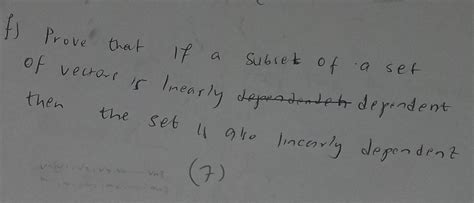 f) Prove that If a subset of a set
of vectors is linearly dependendet dependent
then the set is also linearly dependent
(7)